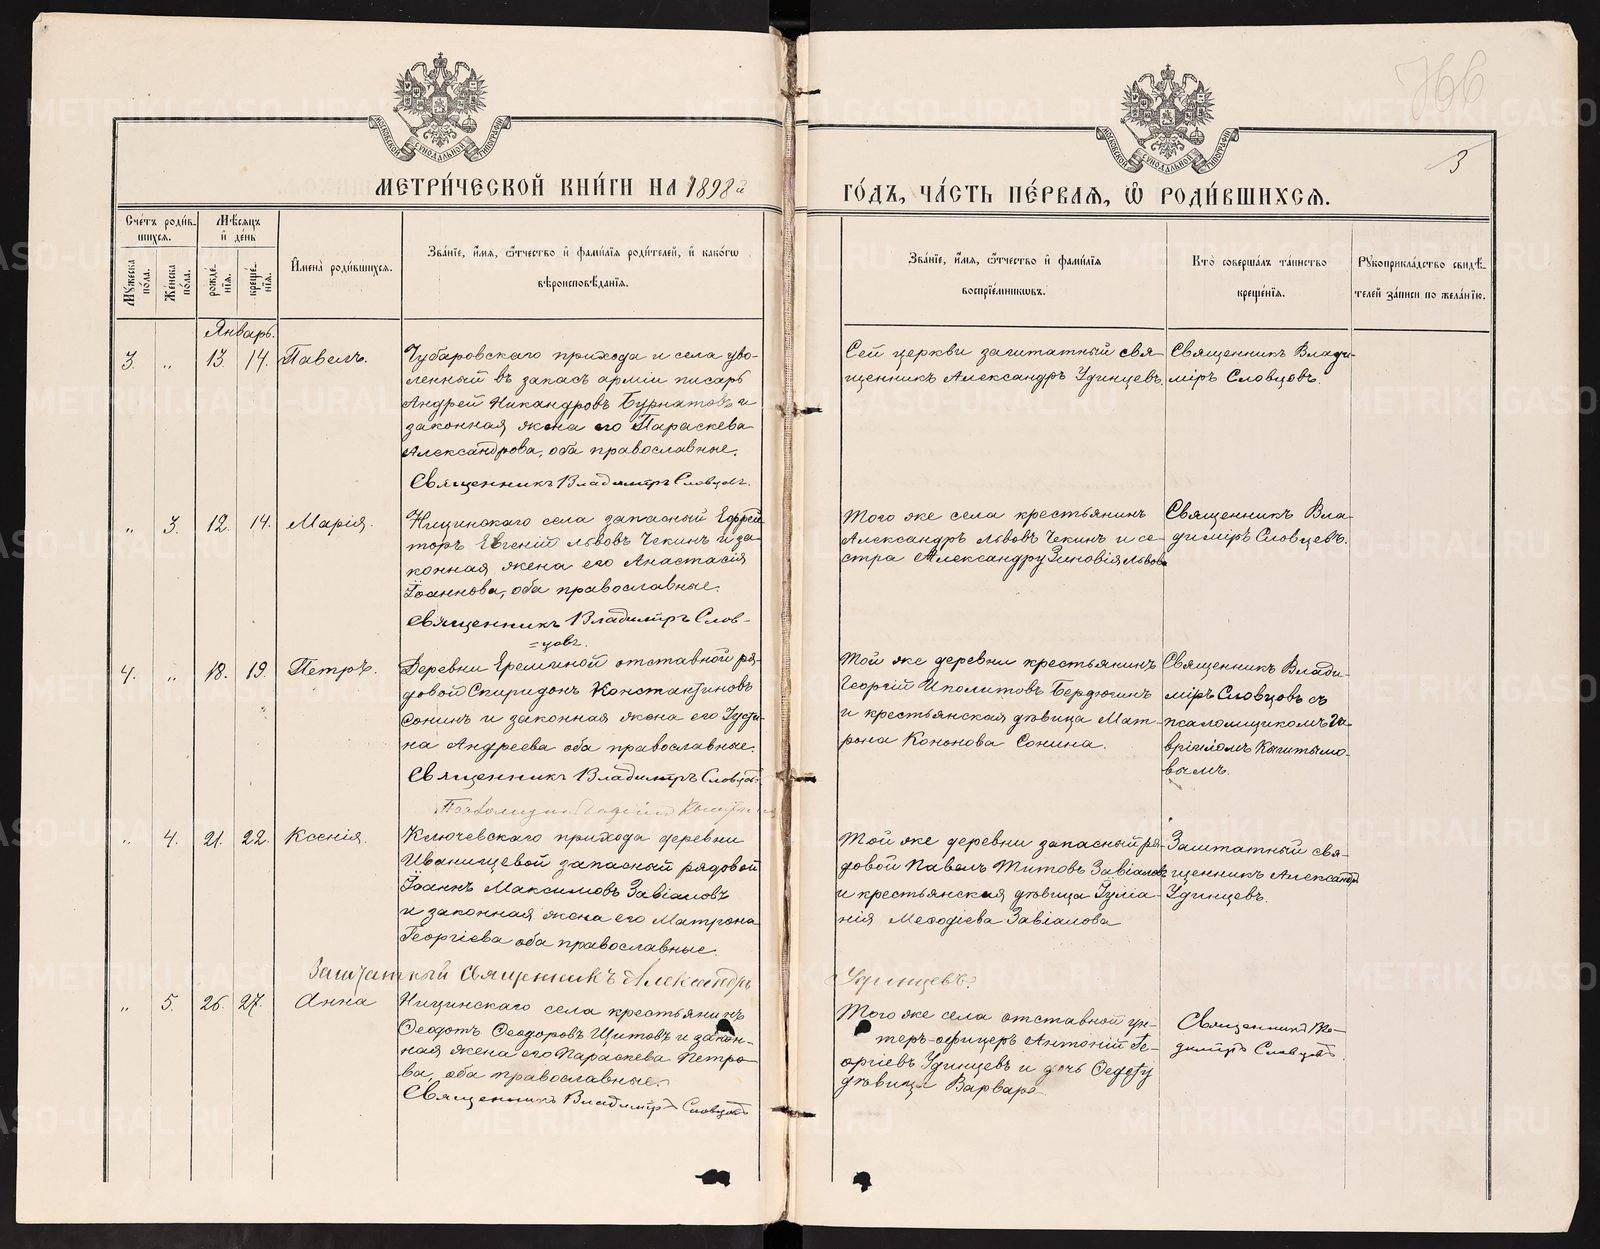 766
3
МОСКОВСКОЙ СѴНОДАЛЬНОЙ ТИПОГРАФІИ
МОСКОВСКОЙ СѴНОДАЛЬНОЙ ТИПОГРАФІИ
МЕТРИ́ЧЕСКОЙ КНИ́ГИ НА 1898й
ГО́ДЪ, ЧА́СТЬ ПЕ́РВАЯ, Ѡ РОДИ́ВШИХСЯ.
Сче́тъ роди́в-
шихся.
Мѣ́сяцъ
и҆ де́нь
Му́жеска по́ла.
Же́нска по́ла.
рожде́-
нїя.
креще́-
нїя.
И҆мена̀ роди́вшихся.
Зва́нїе, и҆́мя, ѻ҆́тчество и҆ фами́лїя роди́телей, и҆ како́гѡ
вѣроисповѣ́данїя.
Зва́нїе, и҆́мя, ѻ҆́тчество и҆ фами́лїя
воспрїе́мниковъ.
Кто̀ соверша́лъ та́инство
креще́нїя.
Рꙋкоприкла́дство свидѣ́-
телей за́писи по жела́нїю.
Январь.
3. „ 13. 14. Павелъ.
Чубаровскаго прихода и села уво-
ленный въ запасъ арміи писарь
Андрей Никандровъ Бурнатовъ и
законная жена его Параскева
Александрова, оба православные.
Священникъ Владимiръ Словцовъ.
Сей церкви заштатный свя-
щенникъ Александръ Удинцевъ.
Священникъ Влади-
міръ Словцовъ.
„ 3. 12. 14. Марія.
Ницинскаго села запасный Ефрей-
торъ Евгеній Львовъ Чекинъ и за-
конная жена его Анастасія
Іоаннова, оба православные.
Священникъ Владимiръ Слов-
=цовъ.
Того же села крестьянинъ
Александръ Львовъ Чекинъ и се-
стра Александру Зиновія Львова
Священникъ Вла-
димiръ Словцевъ.
4. „ 18. 19. Петръ.
Деревни Ереминой отставной ря-
довой Спиридонъ Константиновъ
Сонинъ и законная жена его Іусти-
на Андреева оба православные.
Священникъ Владимiръ Словцовъ.
Той же деревни крестьянинъ
Георгій Иполитовъ Бердюгинъ
и крестьянская дѣвица Мат-
рона Кононова Сонина.
Священникъ Влади-
міръ Словцовъ съ
псаломщикомъ Га-
вріиломъ
вымъ.
„ 4. 21. 22. Ксенія.
Ключевскаго прихода деревни
Иванищевой запасный рядовой
Іоаннъ Максимовъ Завіаловъ
и законная жена его Матрона
Георгіева оба православные.
Заштатный священникъ Александръ
Удинцевъ.
Той же деревни запасный ря-
довой Павелъ Титовъ Завіаловъ
и крестьянская дѣвица Іуліа-
нія Меѳодіева Завіалова
Заштатный свя-
щенникъ Александръ
Удинцевъ.
„ 5. 26. 27. Анна
Ницинскаго села крестьянинъ
Ѳеодотъ Ѳеодоровъ Щитовъ и закон-
ная жена его Параскева Петро-
ва, оба православные.
Священникъ Владимiръ Словцовъ
Того же села отставной ун-
теръ-офицеръ Антоній Ге-
оргіевъ Удинцевъ и дочь
дѣвица Варвара
Священникъ Вла-
димiръ Словцовъ.
METRIKI.GASO-URAL.RU